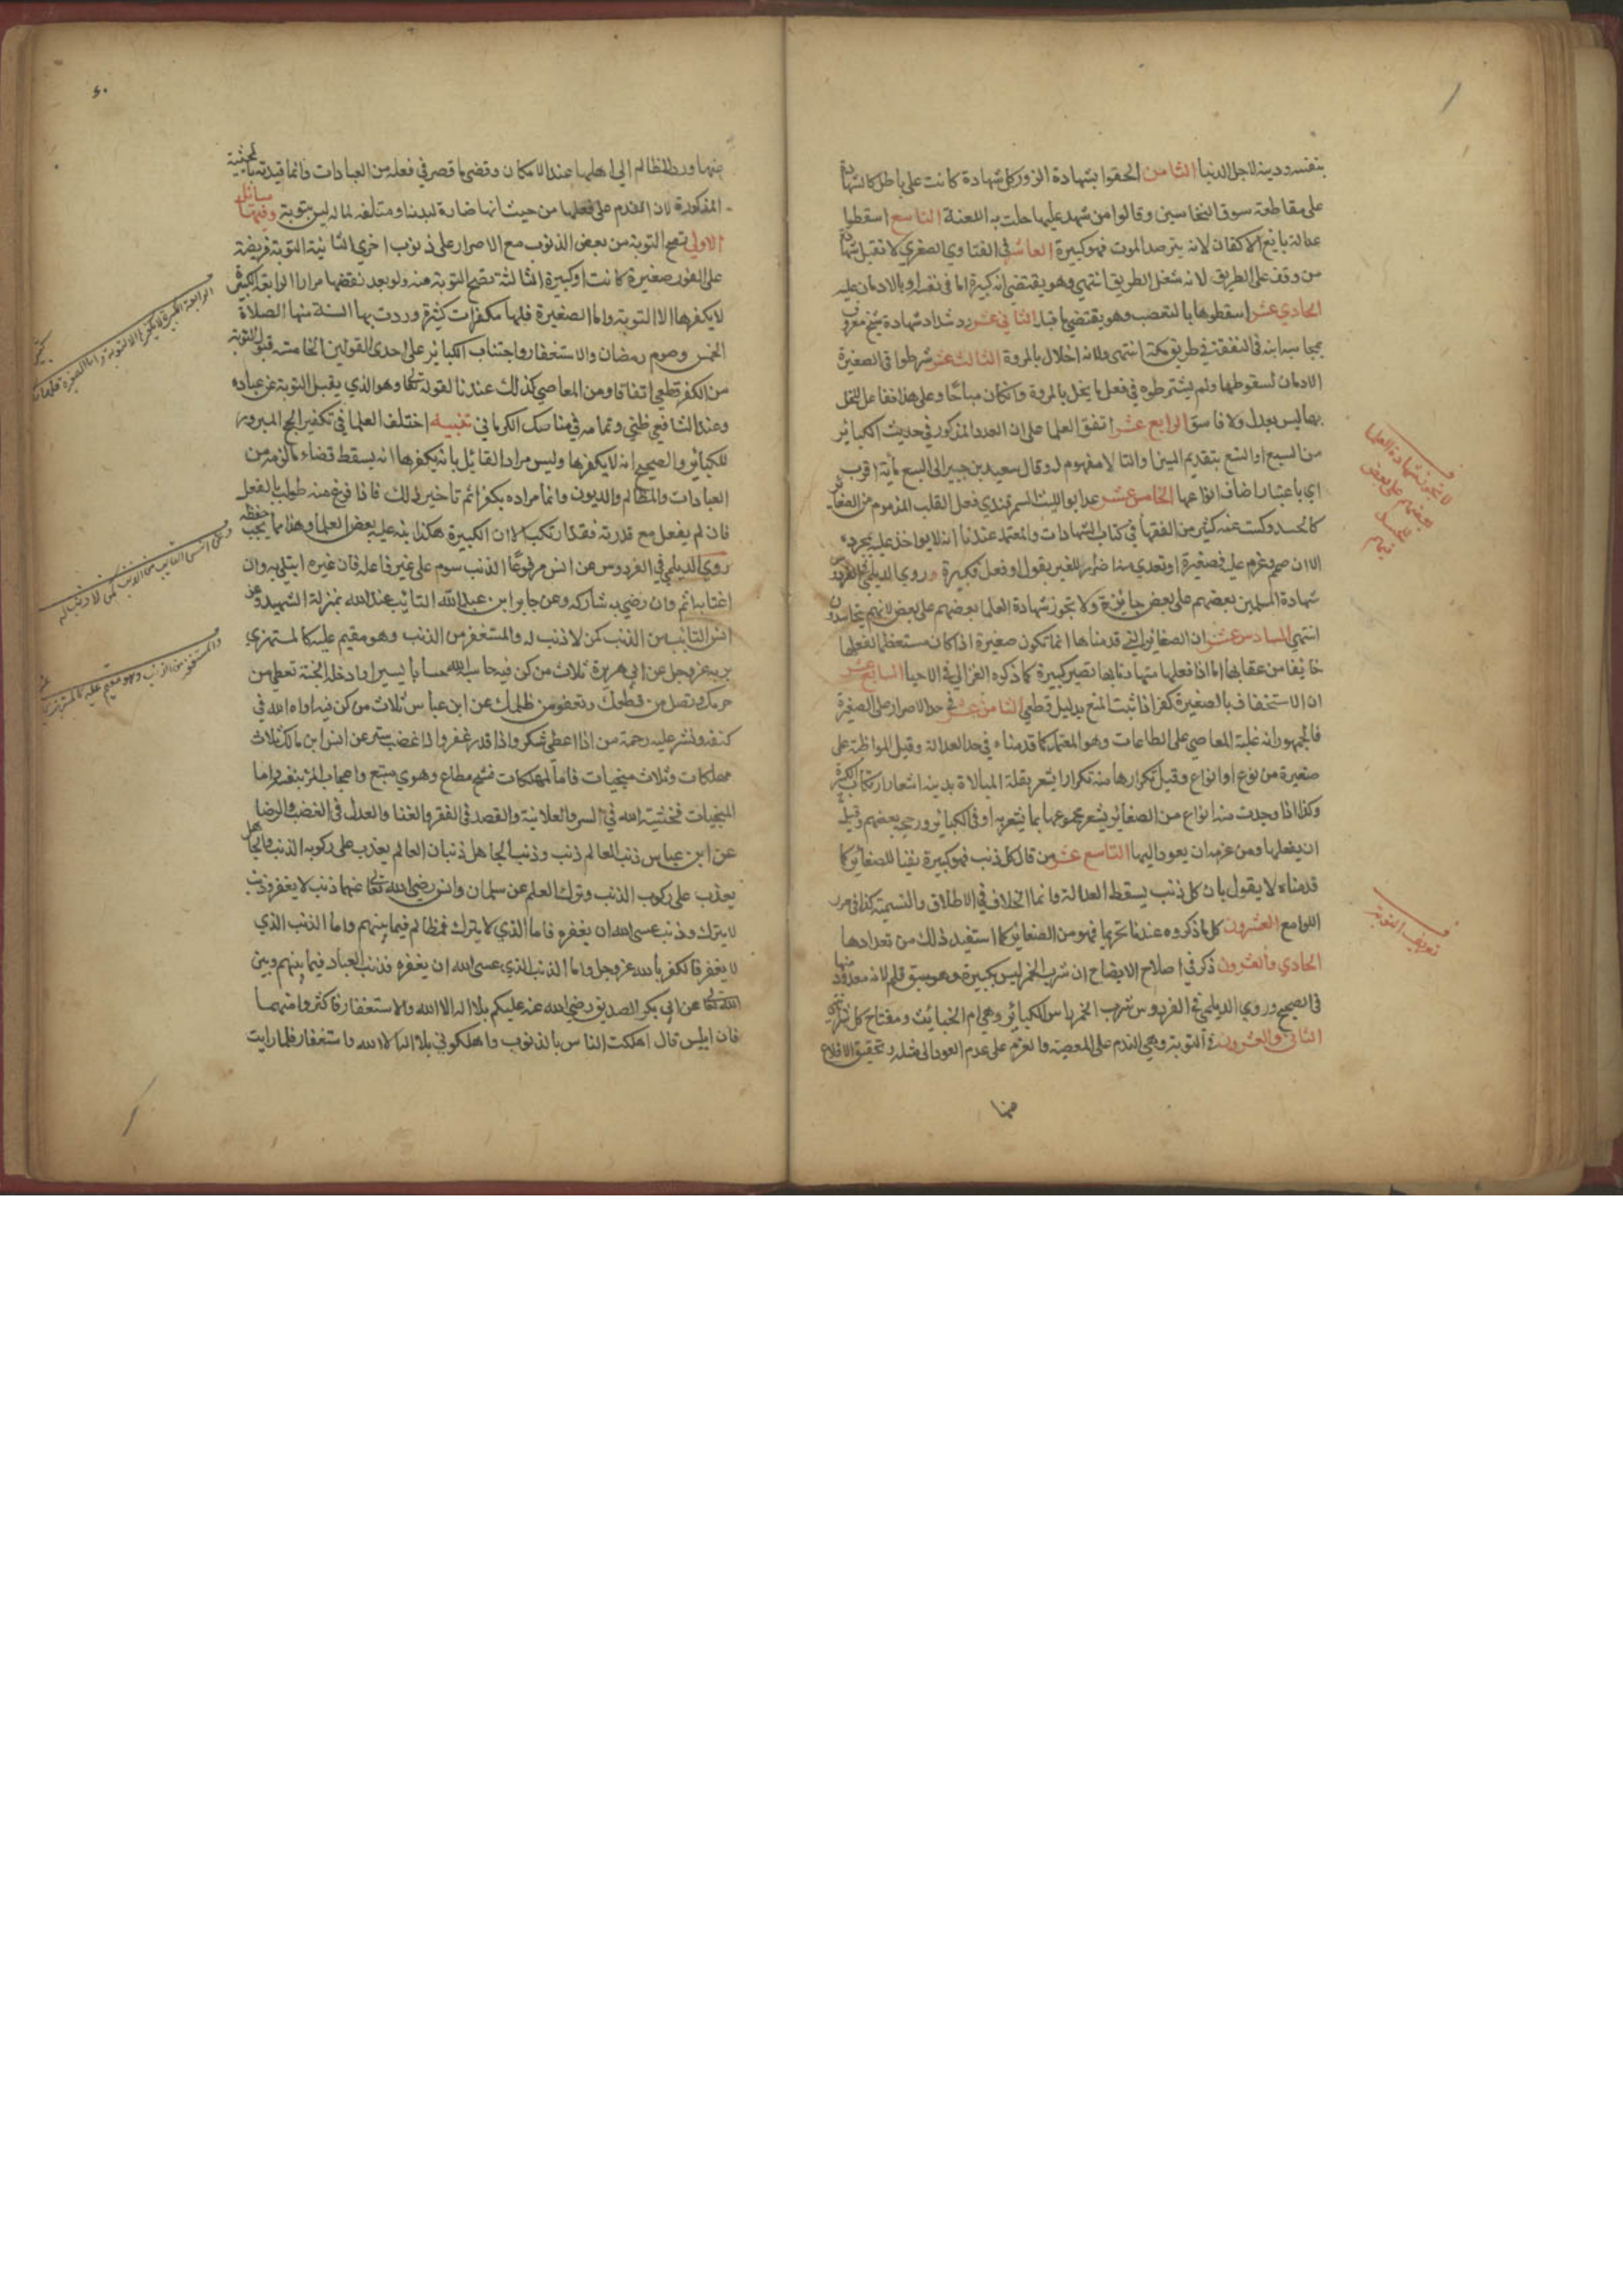 بنفسه ودينه لاجل الدنيا الثامن الحقوا بشهادة الزور كل شهادة كانت على باطل كالشهادة
على مقاطعة سوق النخاسين وقالوا من شهد عليها حلت به اللعنة التاسع اسقطوا
عدالة بايع الاكفان لانه يترصد الموت فهو كبيرة العاشر في الفتاوي الصغري لا تقبل شهادة
من وقف على الطريق لانه شغل الطريق انتهي وهو يقتضي انه كبيرة اما في نفسه او بالادمان عليه
الحادي عشر اسقطوها بالتعصب وهو يقتضي ما قبله الثاني عشر رد شداد شهادة شيخ معروف
بمحاسبة ابنه في النفقة في طريق مكة انتهى ولانه اخلال بالمروة الثالث عشر شرطوا في الصغيرة
الادمان لسقوطها ولم يشترطوه في فعل ما يخل بالمروة وان كان مباحا وعلى هذا ففاعل المخل
بها ليس بعدل ولا فاسق الرابع عشر اتفق العلما على ان العدد المذكور في حديث الكبائر
من السبع او التسع بتقديم السين او التا لا مفهوم له وقال سعيد بن جبير الى السبع مأية اقرب
اي باعتبار اضاف انواعها الخامس عشر عد ابو الليث السمرقندي فعل القلب المذموم من الصغائر
كالحسد وكست عنه كثير من الفقها في كتاب الشهادات والمعتمد عندنا انه لا يواخذ عليه بمجرده
الا ان صمم وعزم عليه فصغيرة او تعدي منه اضرار للغير بقول او فعل فكبيرة وروي الديلمي في الفردوس
شهادة المسلمين بعضهم على بعض جائزة ولا تجوز شهادة العلما بعضهم على بعض لانهم يتحاسدون
انتهي السادس عشر ان الصغائر التي قدمناها انما تكون صغيرة اذا كان مستعظما لفعلها
خايفا من عقابها اما اذا فعلها متهاونا بها تصير كبيرة كما ذكره الغزالي في الاحيا السابع عشر
ان الاستخفاف بالصغيرة كفر اذا ثبت المنع بدليل قطعي الثامن عشر في حد الاصرار على الصغيرة
فالجمهور انه غلبة المعاصي على الطاعات وهو المعتمد كما قدمناه في حد العدالة وقيل المواظبة على
صغيرة من نوع او انواع وقيل تكرارها منه تكرارا يشعر بقلة المبالاة بدينه اشعار ارتكاب الكبيرة
وكذا اذا وجدت منه انواع من الصغائر يشعر مجموعها بما يشعر به اوفي الكبائر ورجحه بعضهم وقيل
ان يفعلها ومن عزمه ان يعود اليها التاسع عشر من قال كل ذنب فهو كبيرة نفيا للصغائر كما
قدمناه لا يقول بان كل ذنب يسقط العدالة وانما الخلاف في الاطلاق والتسمية كذا في درر
اللوامع العشرون كل ما ذكروه عندنا تحريما فهو من الصغائر كما استفيد ذلك من تعدادها
الحادي والعشرون ذكر في اصلاح الايضاح ان شرب الخمر ليس بكبيرة وهو سبق قلم لانه معدود منها
في الصحيح وروي الديلمي في الفردوس شرب الخمر راس الكبائر وهي ام الخبائث ومفتاح كل شر انتهي
الثاني والعشرون في التوبة وهي الندم على المعصية والعزم على عدم العود الى مثله وتحقيق الاقلاع
منها
لا تجوز شهادة العلما
بعضهم على بعض
تعريف التوبة
٤٠
منها ورد المظالم الي اهلها عند الامكان وقضي ما قصر في فعله من العبادات وانما قيدته بالحيثية
المذكورة لان الندم على فعلها من حيث انها ضارة لبدنه او متلفة لماله ليس بتوبة وفيها مسائل
الاولي تصح التوبة من بعض الذنوب مع الاصرار على ذنوب اخري الثانية التوبة فريضة
على الفور صغيرة كانت او كبيرة الثالثة تصح التوبة منه ولو بعد نقضها مرارا الرابعة الكبيرة
لا يكفرها الا التوبة واما الصغيرة فلها مكفرات كثيرة وردت بها السنة منها الصلاة
الخمس وصوم رمضان والاستغفار واجتناب الكبائر على احدى القولين الخامسة قبول التوبة
من الكفر قطعي اتفاقا ومن المعاصي كذلك عندنا لقوله تعالى وهو الذي يقبل التوبة عن عباده
وعند الشافعي ظني وتمامه في مناسك الكرماني تنبيه اختلف العلما في تكفير الحج المبرور
للكبائر والصحيح انه لا يكفرها وليس مراد القائل بانه يكفرها انه يسقط قضاء ما لزمه من
العبادات والمظالم والديون وانما مراده يكفر اثم تاخير ذلك فاذا فرغ منه طولب بالفعل
فان لم يفعل مع قدرته فقد ارتكب الان الكبيرة هكذا نبه عليه بعض العلما وهذا مما يجب حفظه
روي الديلمي في الفردوس عن انس مرفوعا الذنب شوم على غير فاعله فان غيره ابتلي به وان
اغتابه اثم وان رضي به شاركه وعن جابر ابن عبد الله التائب عند الله بمنزلة الشهيد وعن
انس التائب من الذنب كمن لا ذنب له والمستغفر من الذنب وهو مقيم عليه كالمستهزي
بربه عز وجل عن ابي هريرة ثلاث من كن فيه حاسبه الله حسابا يسيرا وادخله الجنة تعطي من
حرمك وتصل من قطعك وتعفو من ظلمك عن ابن عباس ثلاث من كن فيه اواه الله في
كنفه ونشر عليه رحمة من اذا اعطي شكر واذا قدر غفر واذا غضب ستر عن انس ابن مالك ثلاث
مهلكات وثلاث منجيات فاما المهلكات فشح مطاع وهوي متبع واعجاب المرء بنفسه واما
المنجيات فخشية الله في السر والعلانية والقصد في الفقر والغنا والعدل في الغضب والرضا
عن ابن عباس ذنب العالم ذنب وذنب الجاهل ذنبان العالم يعذب على ركوبه الذنب والجاهل
يعذب على ركوب الذنب وترك العلم عن سلمان وانس رضي الله تعالى عنهما ذنب لا يغفر وذنب
لا يترك وذنب عسى الله ان يغفره فاما الذي لا يترك فمظالم فيما بينهم واما الذنب الذي
لا يغفر فالكفر بالله عز وجل واما الذنب الذي عسى الله ان يغفره فذنب العباد فيما بينهم وبين
الله تعالى عن ابي بكر الصديق رضي الله عنه عليكم بلا اله الا الله والاستغفار فاكثروا منهما
فان ابليس قال اهلكت الناس بالذنوب واهلكوني بلا اله الا الله واستغفار فلما رايت
الرابعة الكبيرة لا يكفرها الا التوبة واما الصغيرة فلها مكفرات
وعن انس التائب من الذنب كمن لا ذنب له
والمستغفر من الذنب وهو مقيم عليه كالمستهزي